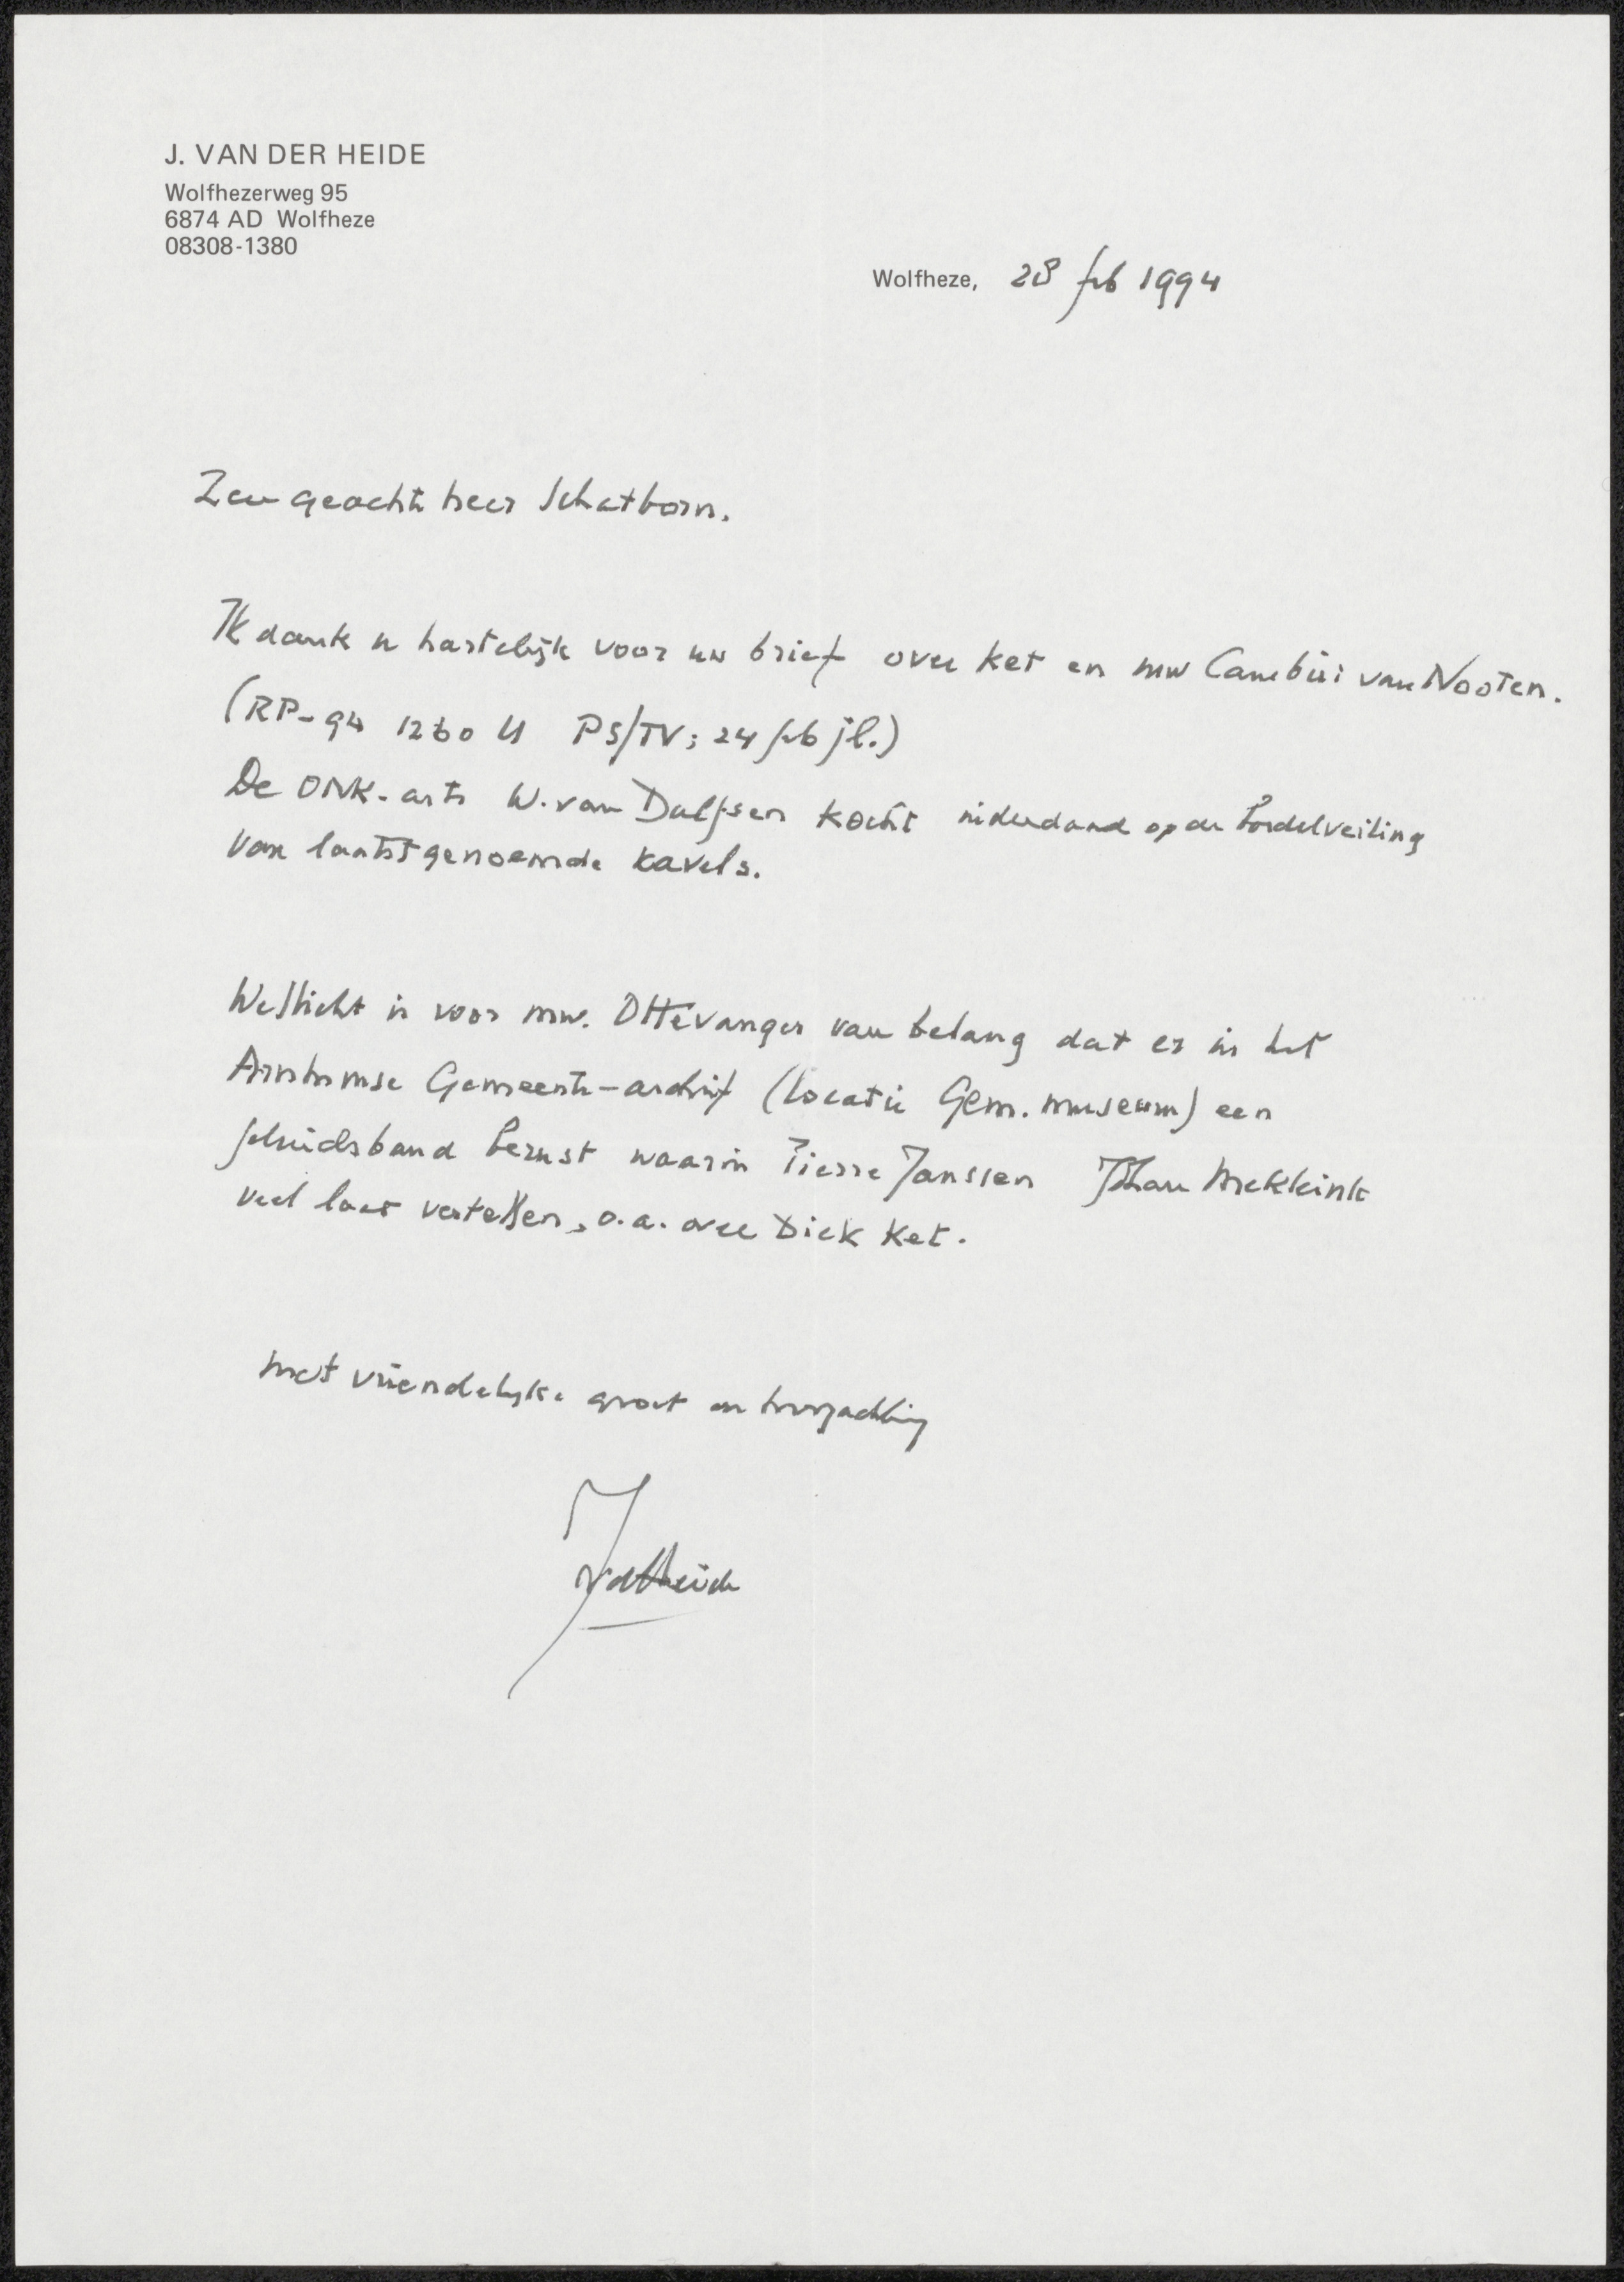 J. VAN DER HEIDE
Wolfhezerweg 95
6874 AD Wolfheze
08308-1380
Wolfheze, 28 feb 1994
Zeer geachte heer Schatborn.
Ik dank u hartelijk voor uw brief over Ket en mw Cambùi van Nooten.
(RP-94 1260 U PS/TV; 24 feb jl.)
De ONK-arts W. van Dalfsen kocht inderdaad op de boedelveiling
van laatstgenoemde kavels.
Wellicht is voor mw. Ottevanger van belang dat er in het
Arnhemse Gemeente-archief (locatie Gem. museum) een
geluidsband berust waarin Pierre Janssen Johan Mekkink
veel laat vertellen, o.a. over Dick Ket.
met vriendelijke groet en hoogachting
JvdHeide